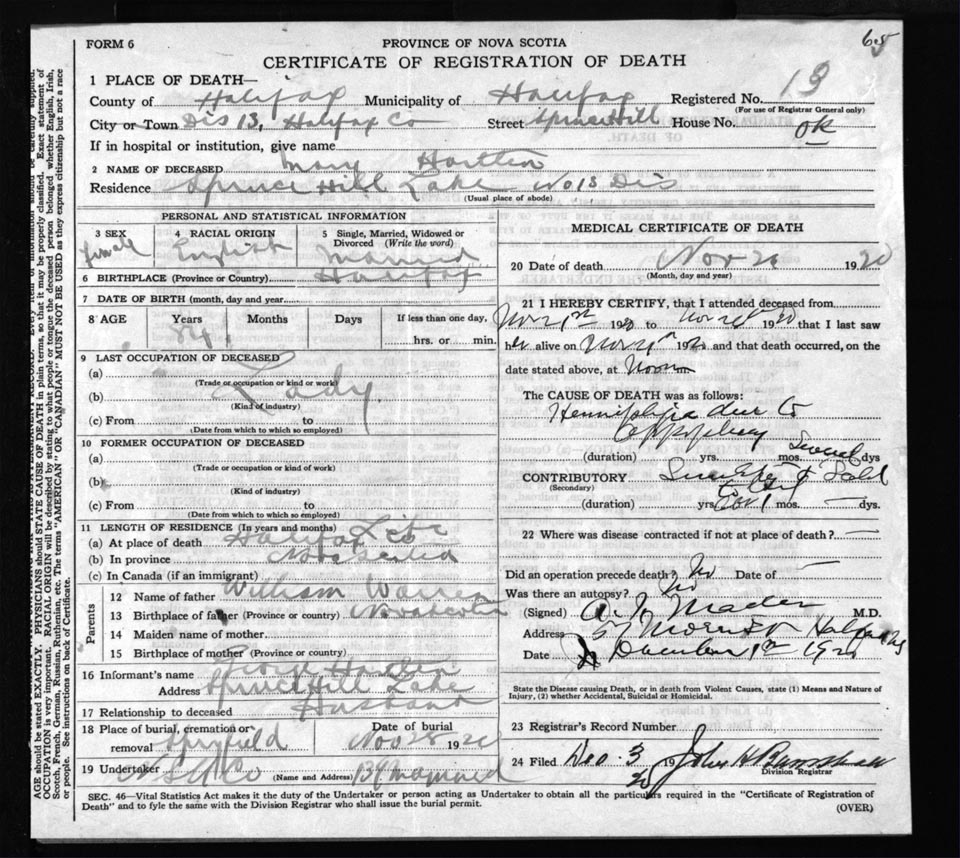 65
FORM 6
PROVINCE OF NOVA SCOTIA
CERTIFICATE OF REGISTRATION OF DEATH
1 PLACE OF DEATH—
County of Halifax Municipality of Halifax Registered No. 13
(For use of Registrar General only)
City or Town Dis 13, Halifax Co Street Spruce Hill House No. ok
If in hospital or institution, give name
2 NAME OF DECEASED Mary
Residence Spruce Hill Lake No 13 Dis
(Usual place of abode)
PERSONAL AND STATISTICAL INFORMATION
3 SEX female
4 RACIAL ORIGIN English
5 Single, Married, Widowed or Divorced (Write the word) Married
6 BIRTHPLACE (Province or Country) Halifax
7 DATE OF BIRTH (month, day and year)
8 AGE Years Months Days If less than one day, hrs. or min.
9 LAST OCCUPATION OF DECEASED
(a) Lady
(Trade or occupation or kind or work)
(b)
(Kind of industry)
(c) From to
(Date from which to which so employed)
10 FORMER OCCUPATION OF DECEASED
(a)
(Trade or occupation or kind of work)
(b)
(Kind of industry)
(c) From to
(Date from which to which so employed)
11 LENGTH OF RESIDENCE (In years and months)
(a) At place of death Halifax Co
(b) In province Nova Scotia
(c) In Canada (if an immigrant)
Parents
12 Name of father William Warren
13 Birthplace of father (Province or country) Nova Scotia
14 Maiden name of mother
15 Birthplace of mother (Province or country)
16 Informant's name George
Address Spruce Hill Lake
17 Relationship to deceased Husband
18 Place of burial, cremation or removal Spryfield
Date of burial Nov 28 1920
19 Undertaker
(Name and Address)
MEDICAL CERTIFICATE OF DEATH
20 Date of death Nov 26 1920
(Month, day and year)
21 I HEREBY CERTIFY, that I attended deceased from
Nov 1920 to Nov 1920 that I last saw
her alive on Nov 1920 and that death occurred, on the
date stated above, at Noon
The CAUSE OF DEATH was as follows:
Hemiplegia due to
Apoplexy
(duration) yrs. mos. Several dys
CONTRIBUTORY
(Secondary)
(duration) yrs. mos. dys.
22 Where was disease contracted if not at place of death? —
Did an operation precede death? No Date of —
Was there an autopsy? No
(Signed) Mader M.D.
Address 57 Morris St Halifax NS
Date December 1st 1920
State the Disease causing Death, or in death from Violent Causes, state (1) Means and Nature of
Injury, (2) whether Accidental, Suicidal or Homicidal.
23 Registrar's Record Number
24 Filed Dec. 3 1920 John H
Division Registrar
SEC. 46—Vital Statistics Act makes it the duty of the Undertaker or person acting as Undertaker to obtain all the particulars required in the "Certificate of Registration of
Death" and to fyle the same with the Division Registrar who shall issue the burial permit.
(OVER)
AGE should be stated EXACTLY. PHYSICIANS should STATE CAUSE OF DEATH in plain terms, so that it may be properly classified. Exact statement of
OCCUPATION is very important. RACIAL ORIGIN will be described by stating to what people or tongue the deceased person belonged whether English, Irish,
Scotch, French, German, Russian, Ruthenian, etc. The terms "AMERICAN" OR "CANADIAN" MUST NOT BE USED as they express citizenship but not a race
or people. See instructions on back of Certificate.